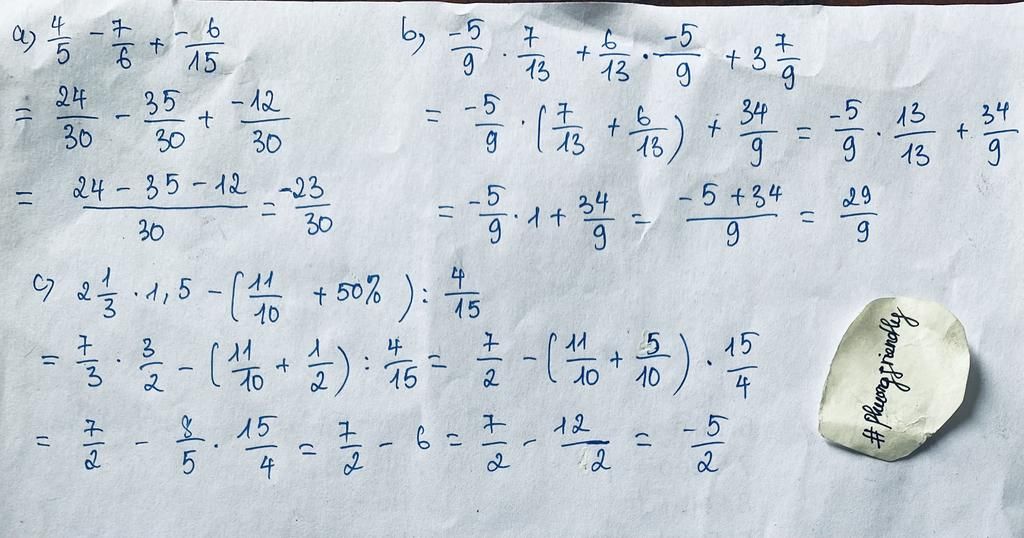 a) 4/5 - 7/6 + -6/15
= 24/30 - 35/30 + -12/30
= (24 - 35 - 12)/30 = -23/30
b) -5/9 . 7/13 + 6/13 . -5/9 + 3 7/9
= -5/9 . (7/13 + 6/13) + 34/9 = -5/9 . 13/13 + 34/9
= -5/9 . 1 + 34/9 = (-5 + 34)/9 = 29/9
c) 2 1/3 . 1,5 - (11/10 + 50%) : 4/15
= 7/3 . 3/2 - (11/10 + 1/2) : 4/15 = 7/2 - (11/10 + 5/10) . 15/4
= 7/2 - 8/5 . 15/4 = 7/2 - 6 = 7/2 - 12/2 = -5/2